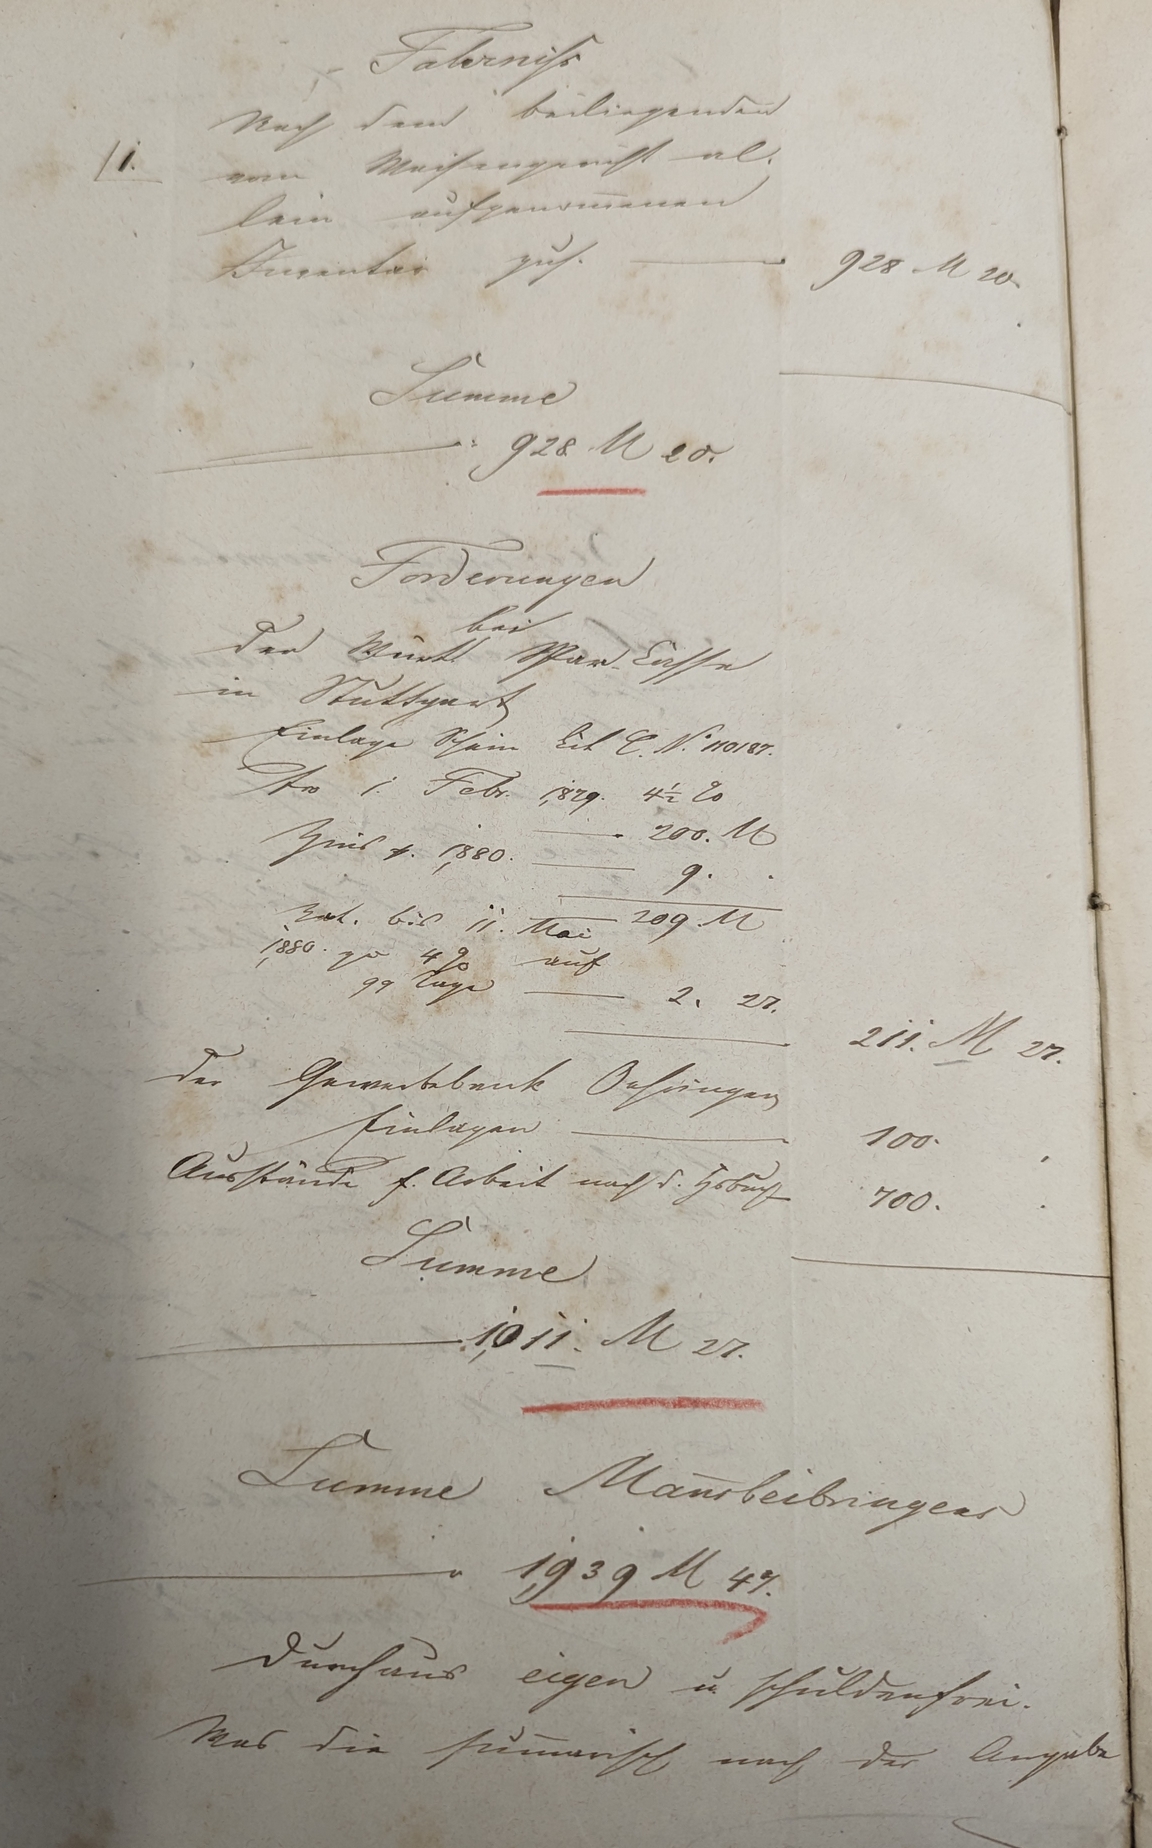 Fahrniß
Nach dem beiliegenden
1.
vom Waisengericht al-
lein aufgenom̄enen
Inventar zus. 928 M 20.
Summe
928 M 20.
Forderungen
bei
der Württ. Spar-Casse
in Stuttgart
Einlage Schein Lit C. No 110187.
pro 1. Febr. 1,879. 4½ %
200. M
Zins p. 1,880. 9. .
209. M
Rat. bis 11. Mai
1,880. zu 4 % auf
99 Tage 2. 27.
211. M 27.
der Gewerbebank Oehringen
Einlagen 100.
Ausstände f. Arbeit nach d. Hsbuch 700.
Summe
1,011. M 27.
Summe Man̄sbeibringens
1,939 M 47.
durchaus eigen u. schuldenfrei.
Was die sum̄arisch nach der Angabe